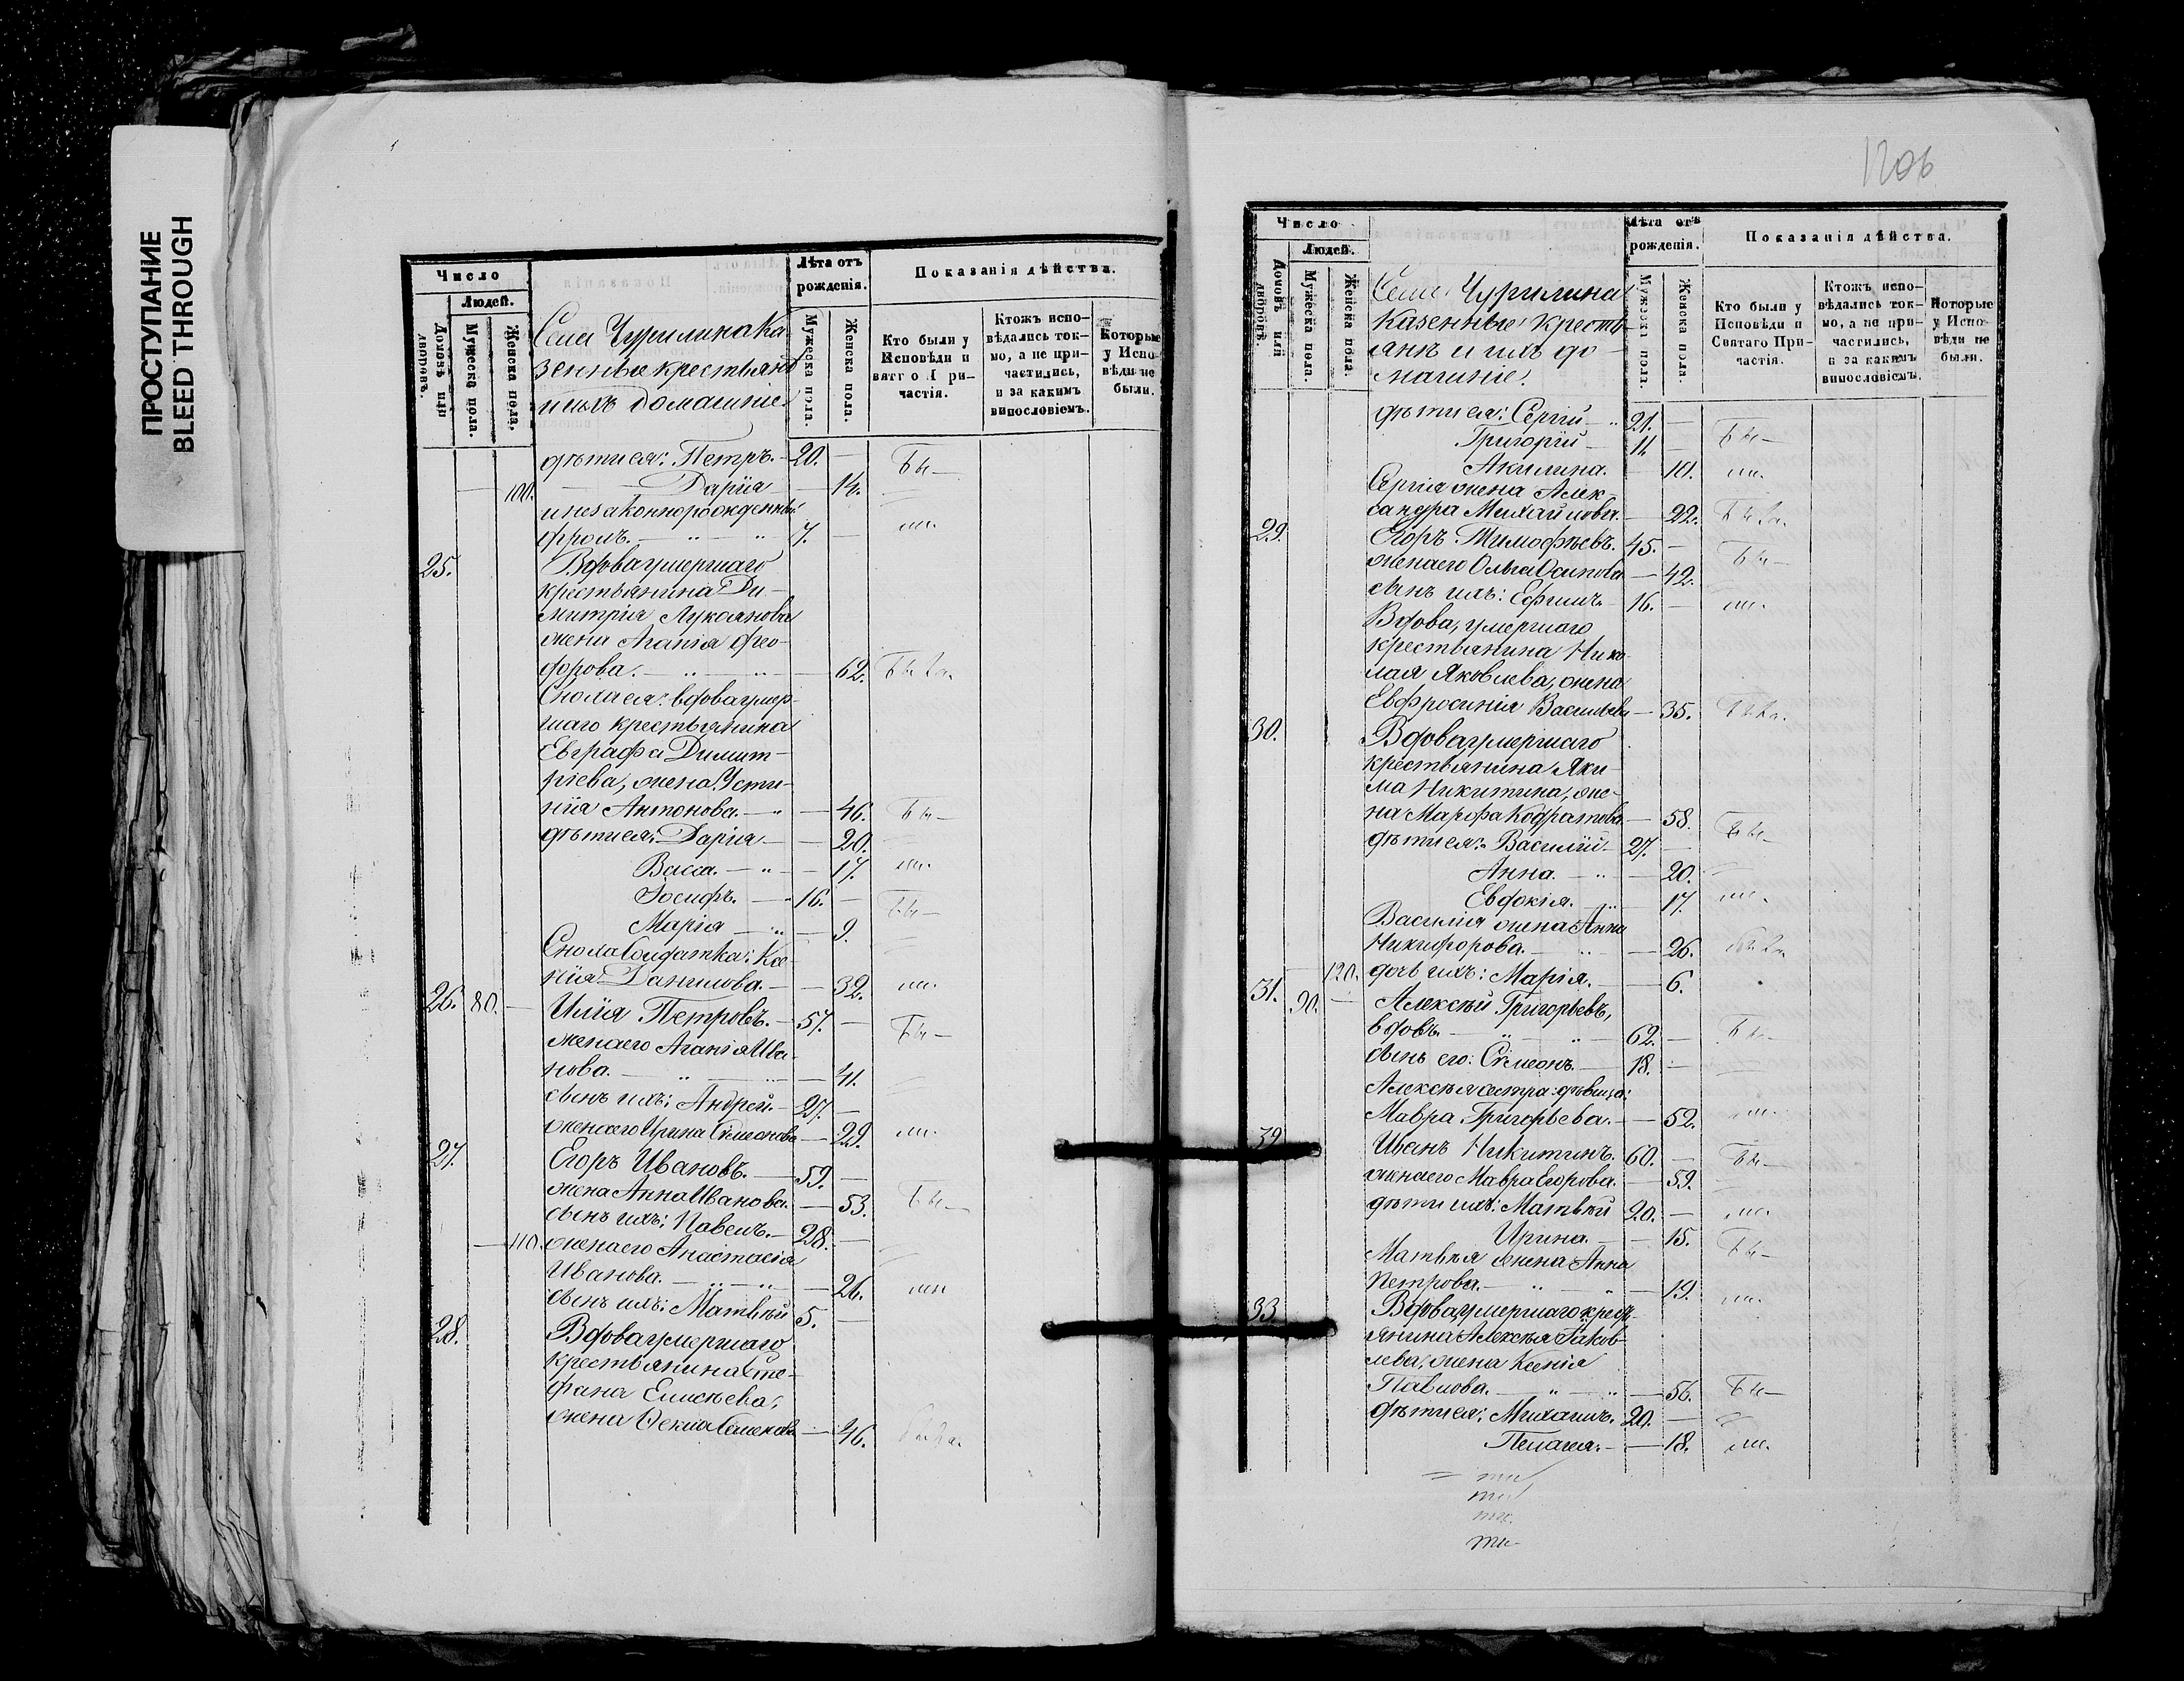 ПРОСТУПАНИЕ
BLEED THROUGH
Число
Людей.
Домовъ или дворовъ.
Мужеска пола.
Женска пола.
Лѣта отъ рожденія.
Мужеска пола.
Женска пола.
Показанія дѣйства.
Кто были у Исповѣди и вятг о І ри-частія.
Ктожъ испо-вѣдались ток-мо, а не при-частились, и за какимъ винословіемъ.
Которые у Испо-вѣди не были.
Села Чурилина Ка-
зенные крестьяне
и ихъ домашніе.
дѣти ея: Петръ. 20. Бы-
100. Дарія 14.
и незаконнорожденный
7.
25. Вдова умершаго
крестьянина Ди-
митрія Лукоянова
жена Агапія Фео-
дорова. 62.
Сноха ея: вдова умер-
шаго крестьянина
Евграфа Димит-
ріева, жена Усти-
нія Антонова. 46. Бы-
дѣти ея: Дарія 20.
Васса. 17. ли.
Іосифъ. 16. Бы-
Марія 9.
Сноха Солдатка: Ксе-
нія Данилова. 32. ли.
26. 80. Илія Петровъ. 57. Бы-
жена его Агапія Ива-
нова. 41.
сынъ ихъ: Андрей. 27.
жена его Ирина Симеонова 29. ли.
27. Егоръ Ивановъ. 59.
жена Анна Иванова. 53. Бы-
сынъ ихъ: Павелъ. 28.
110. жена его Анастасія
Иванова. 26. ли
сынъ ихъ: Матвѣй 5.
28. Вдова умершаго
крестьянина Сте-
фана Елисѣева,
жена 46.
1206
Число
Людей.
Домовъ или дворовъ.
Мужеска пола.
Женска пола.
Лѣта отъ рожденія.
Мужеска пола.
Женска пола.
Показанія дѣйства.
Кто были у Исповѣди и Святаго При-частія.
Ктожъ испо-вѣдались ток-мо, а не при-частились, и за какимъ винословіемъ.
Которые у Испо-вѣди не были.
Села Чурилина
Казенные кресть-
янъ и ихъ до-
машніе.
дѣти ея: Сергій 21.
Григорій 11. Бы-
Акилина. 10. ли.
Сергія жена Алек-
сандра Михайлова. 22.
29. Егоръ Тимофѣевъ. 45. Бы-
жена его Ольга Осипова 42.
сынъ ихъ: Ефимъ 16. ли.
Вдова, умершаго
крестьянина Нико-
лая Яковлева, жена
Евфросинія Васильева 35.
30. Вдова умершаго
крестьянина Яки-
ма Никитина, же-
на Марфа Кодратова 58. Бы-
дѣти ея: Василій 27.
Анна. 20.
Евдокія. 17. ли.
Василія жена Анна
Никифорова. 26.
120. дочь ихъ: Марія. 6.
31. 90. Алексѣй Григорьевъ,
вдовъ. 62. Бы-
сынъ его: Симеонъ. 18.
Алексѣя сестра: дѣвица:
Мавра Григорьева. 52. ли.
32. Иванъ Никитинъ. 60. Бы-
жена его Мавра Егорова. 59.
дѣти ихъ: Матвѣй 20. ли.
Ирина. 15. Бы-
Матвѣя жена Анна
Петрова. 19. ли.
33. Вдова умершаго крест-
янина Алексѣя Яков-
лева, жена Ксенія
Павлова. 56. Бы-
дѣти ея: Михаилъ. 20.
Пелагея. 18. ли.